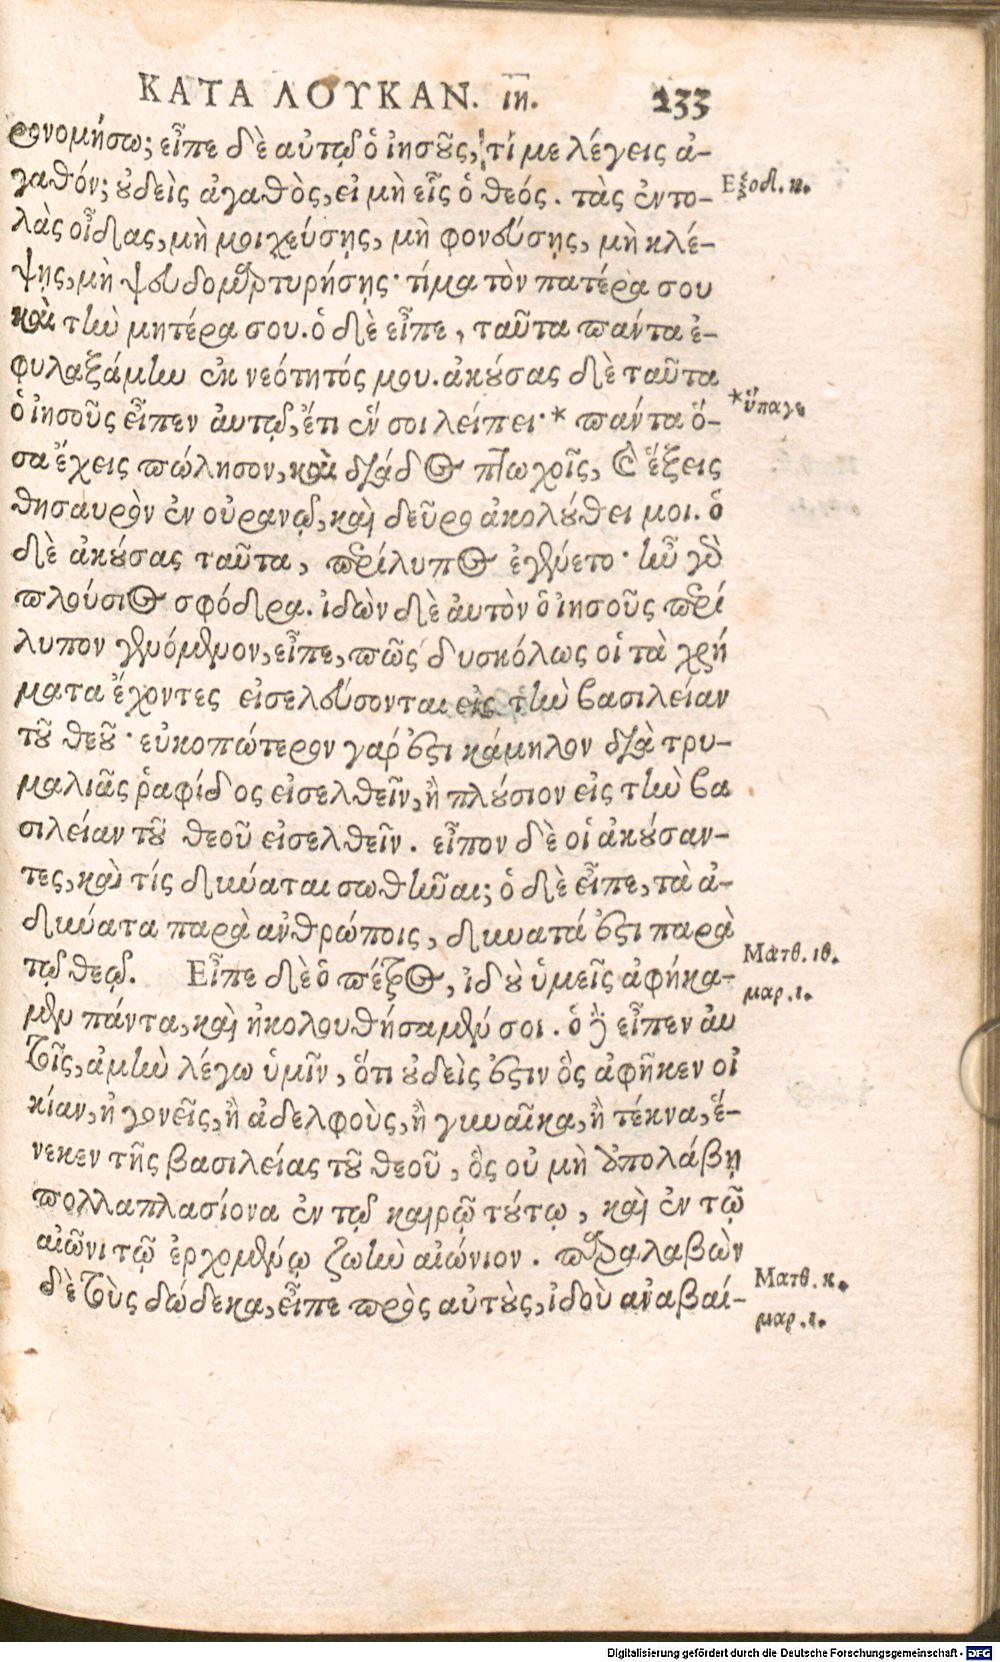 ΚΑΤΑ ΛΟΥΚΑΝ. ιη. 233
ρονομήσω; εἶπε δὲ αὐτῷ ὁ ἰησοῦς, τί με λέγεις ἀ-
γαθόν; οὐδεὶς ἀγαθὸς, εἰ μὴ εἷς ὁ θεός. τὰς ἐντο-
Εξοδ. κ.
λὰς οἶδας, μὴ μοιχεύσῃς, μὴ φονεύσῃς, μὴ κλέ-
ψῃς, μὴ ψευδομαρτυρήσῃς· τίμα τὸν πατέρα σου
καὶ τὴν μητέρα σου. ὁ δὲ εἶπε, ταῦτα πάντα ἐ-
φυλαξάμην ἐκ νεότητός μου. ἀκούσας δὲ ταῦτα
ὁ ἰησοῦς εἶπεν ἀυτῷ, ἔτι ἕν σοι λείπει·* πάντα ὅ-
*ὕπαγε
σα ἔχεις πώλησον, καὶ διάδος πτωχοῖς, καὶ ἕξεις
θησαυρὸν ἐν οὐρανῷ, καὶ δεῦρο ἀκολούθει μοι. ὁ
δὲ ἀκούσας ταῦτα, περίλυπος ἐγένετο· ἦν γὰρ
πλούσιος σφόδρα. ἰδὼν δὲ ἀυτὸν ὁ ἰησοῦς περί
λυπον γενόμενον, εἶπε, πῶς δυσκόλως οἱ τὰ χρή
ματα ἔχοντες εἰσελεύσονται εἰς τὴν βασιλείαν
τοῦ θεοῦ· εὐκοπώτερον γάρ ἐστι κάμηλον διὰ τρυ-
μαλιᾶς ῥαφίδος εἰσελθεῖν, ἢ πλούσιον εἰς τὴν βα
σιλείαν τοῦ θεοῦ εἰσελθεῖν. εἶπον δὲ οἱ ἀκούσαν-
τες, καὶ τίς δύναται σωθῆναι; ὁ δὲ εἶπε, τὰ ἀ-
δύνατα παρὰ ἀνθρώποις, δυνατά ἐστι παρὰ
τῷ θεῷ. Εἶπε δὲ ὁ πέτρος, ἰδοὺ ὑμεῖς ἀφήκα-
Ματθ. ιθ.
μαρ. ι.
μεν πάντα, καὶ ἠκολουθήσαμέν σοι. ὁ δὲ εἶπεν ἀυ
τοῖς, ἀμὴν λέγω ὑμῖν, ὅτι οὐδείς ἐστιν ὃς ἀφῆκεν οἰ
κίαν, ἢ γονεῖς, ἢ ἀδελφοὺς, ἢ γυναῖκα, ἢ τέκνα, ἕ-
νεκεν τῆς βασιλείας τοῦ θεοῦ, ὃς οὐ μὴ ἀπολάβῃ
πολλαπλασίονα ἐν τῷ καιρῷ τούτῳ, καὶ ἐν τῷ
αἰῶνι τῷ ἐρχομένῳ ζωὴν αἰώνιον. παραλαβὼν
δὲ τοὺς δώδεκα, εἶπε πρὸς αὐτοὺς, ἰδοὺ αναβαί-
Ματθ. κ.
μαρ. ι.
Digitalisierung gefördert durch die Deutsche Forschungsgemeinschaft - DFG